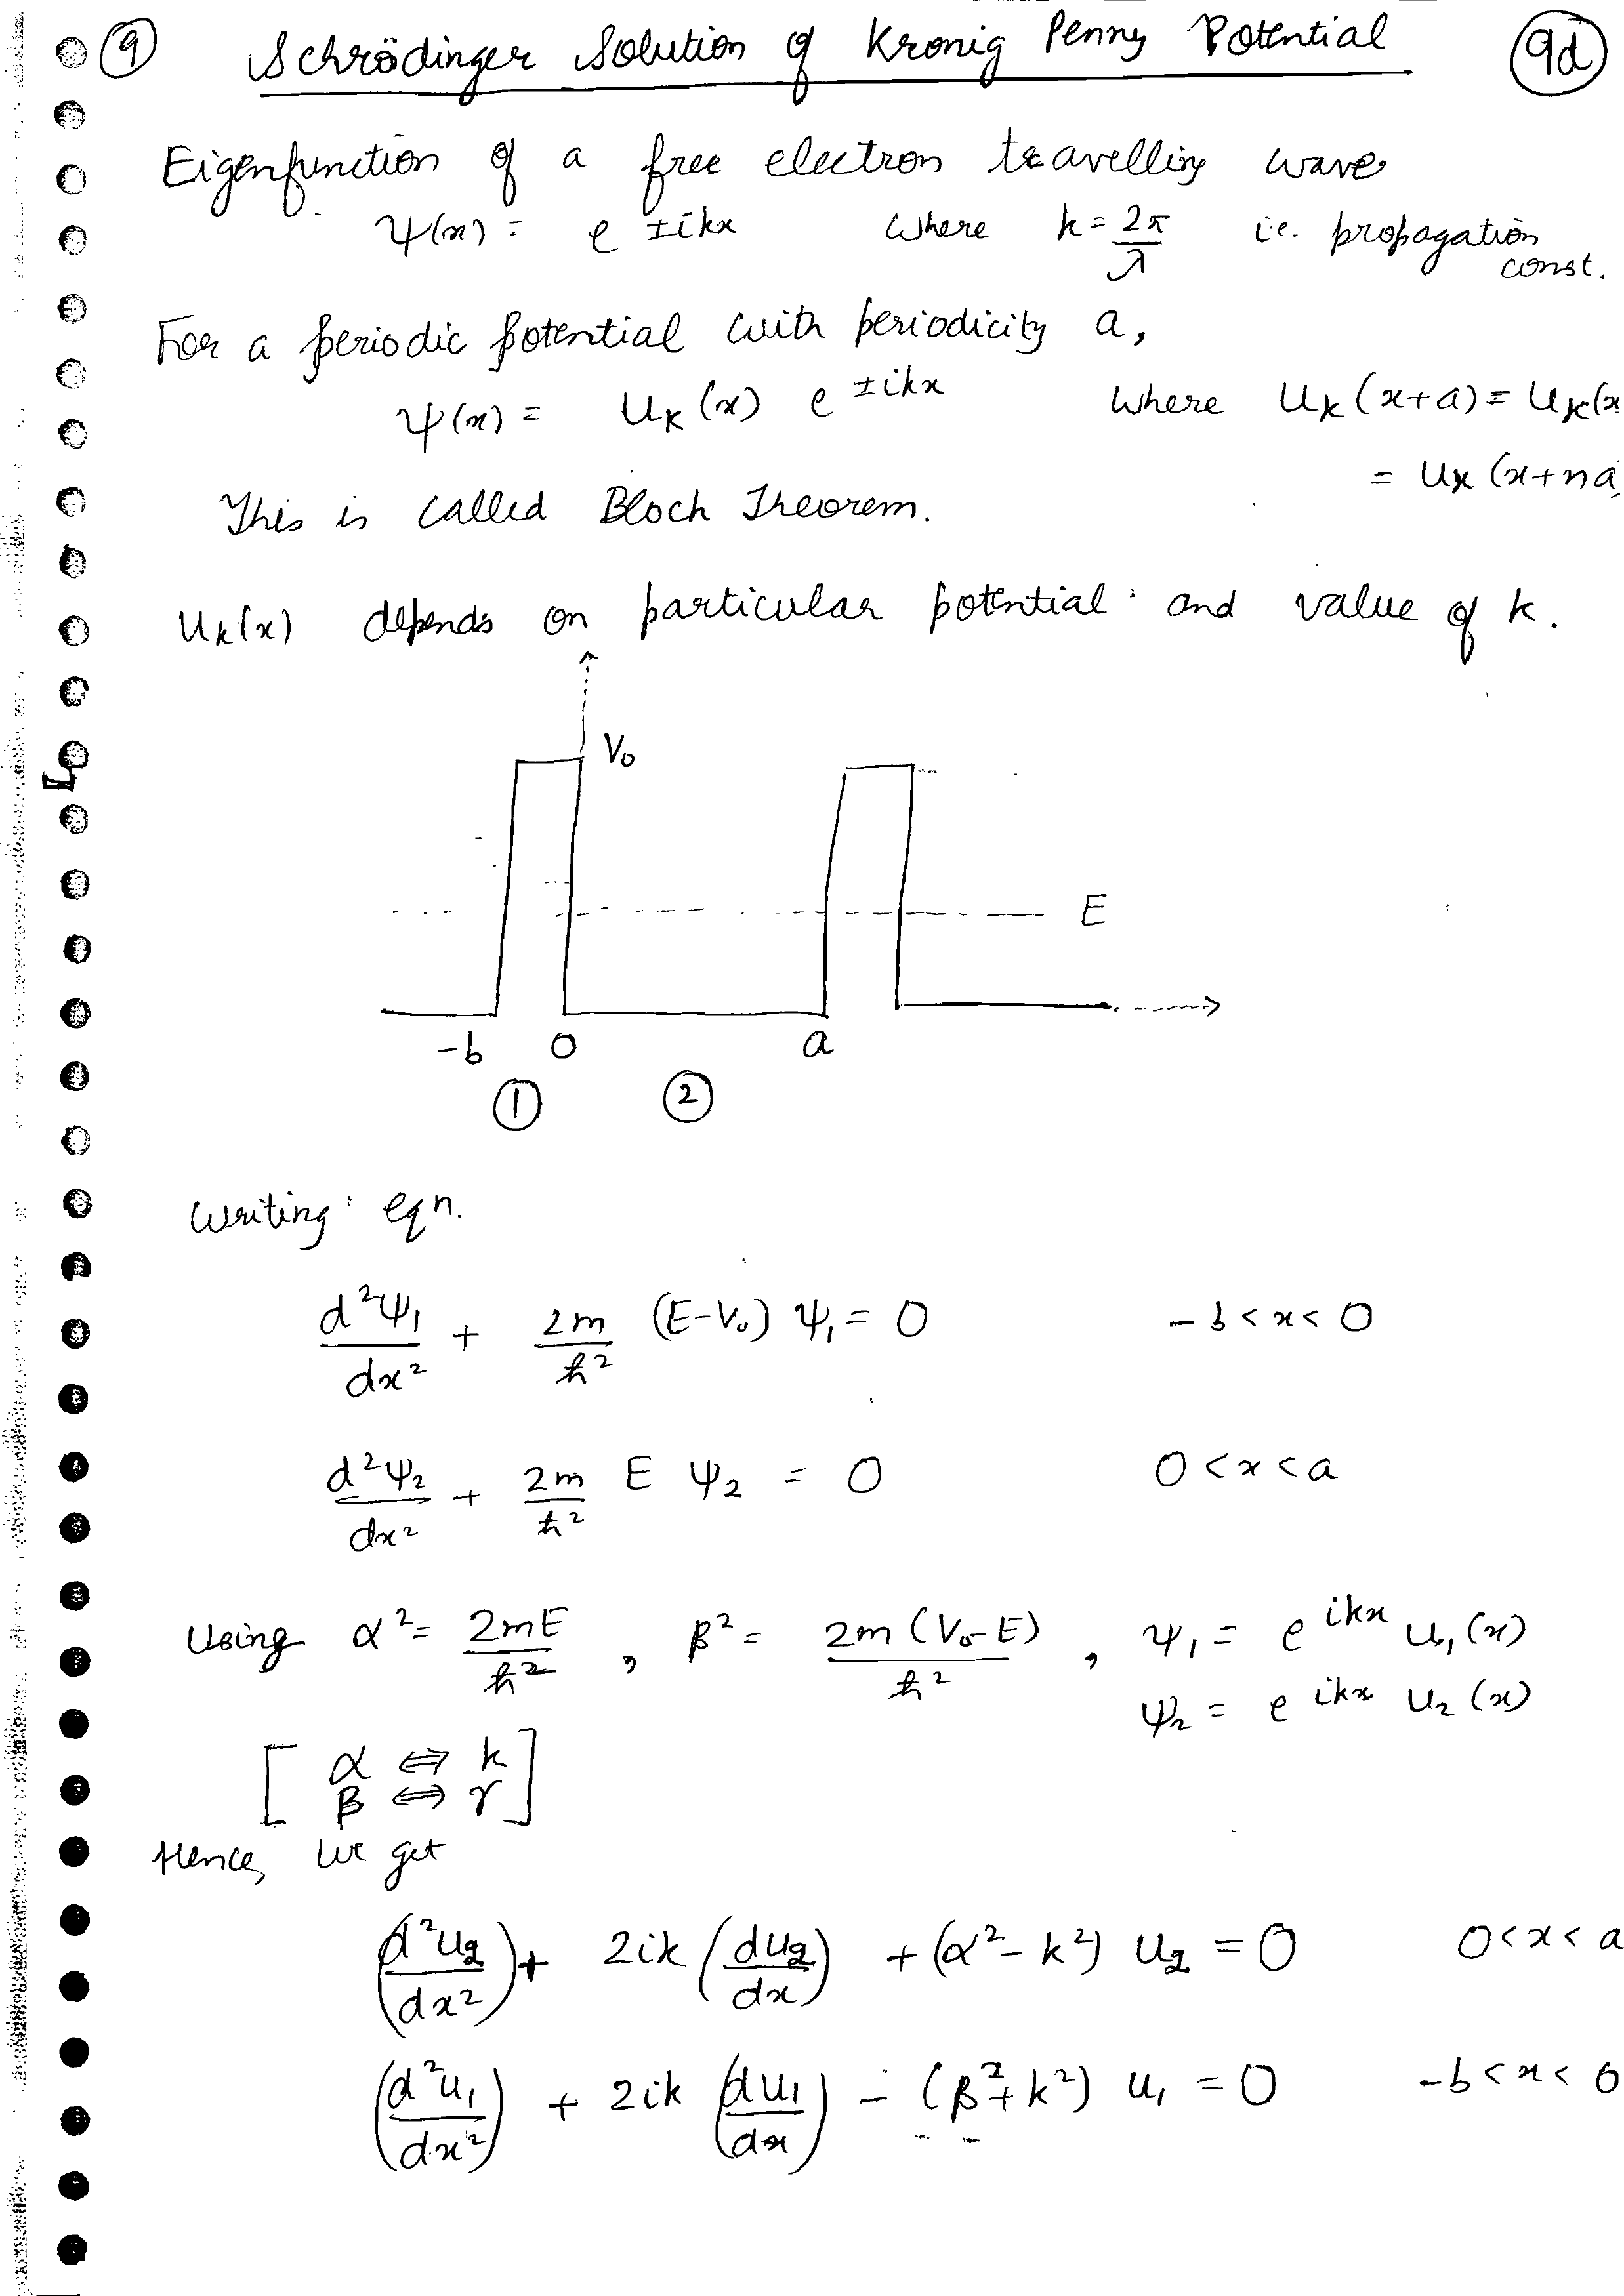 ⑨ Schrödinger Solution of Kronig Penny Potential 9d
Eigenfunction of a free electron travelling wave
ψ(x) = e^{±ikx} where k = 2π/λ i.e. propagation
const.
For a periodic potential with periodicity a,
ψ(x) = U_k(x) e^{±ikx} where U_k(x+a) = U_k(x
= U_k(x+na
This is called Bloch Theorem.
U_k(x) depends on particular potential and value of k.
V₀
E
-b 0 a
① ②
Writing eqn.
d²ψ₁/dx² + 2m/ħ² (E-V₀) ψ₁ = 0 -b < x < 0
d²ψ₂/dx² + 2m/ħ² E ψ₂ = 0 0 < x < a
Using α² = 2mE/ħ² , β² = 2m(V₀-E)/ħ² , ψ₁ = e^{ikx} u₁(x)
ψ₂ = e^{ikx} u₂(x)
[ α ⇔ k
β ⇔ γ ]
Hence, we get
(d²u₂/dx²) + 2ik (du₂/dx) + (α² - k²) u₂ = 0 0 < x < a
(d²u₁/dx²) + 2ik (du₁/dx) - (β² + k²) u₁ = 0 -b < x < 0